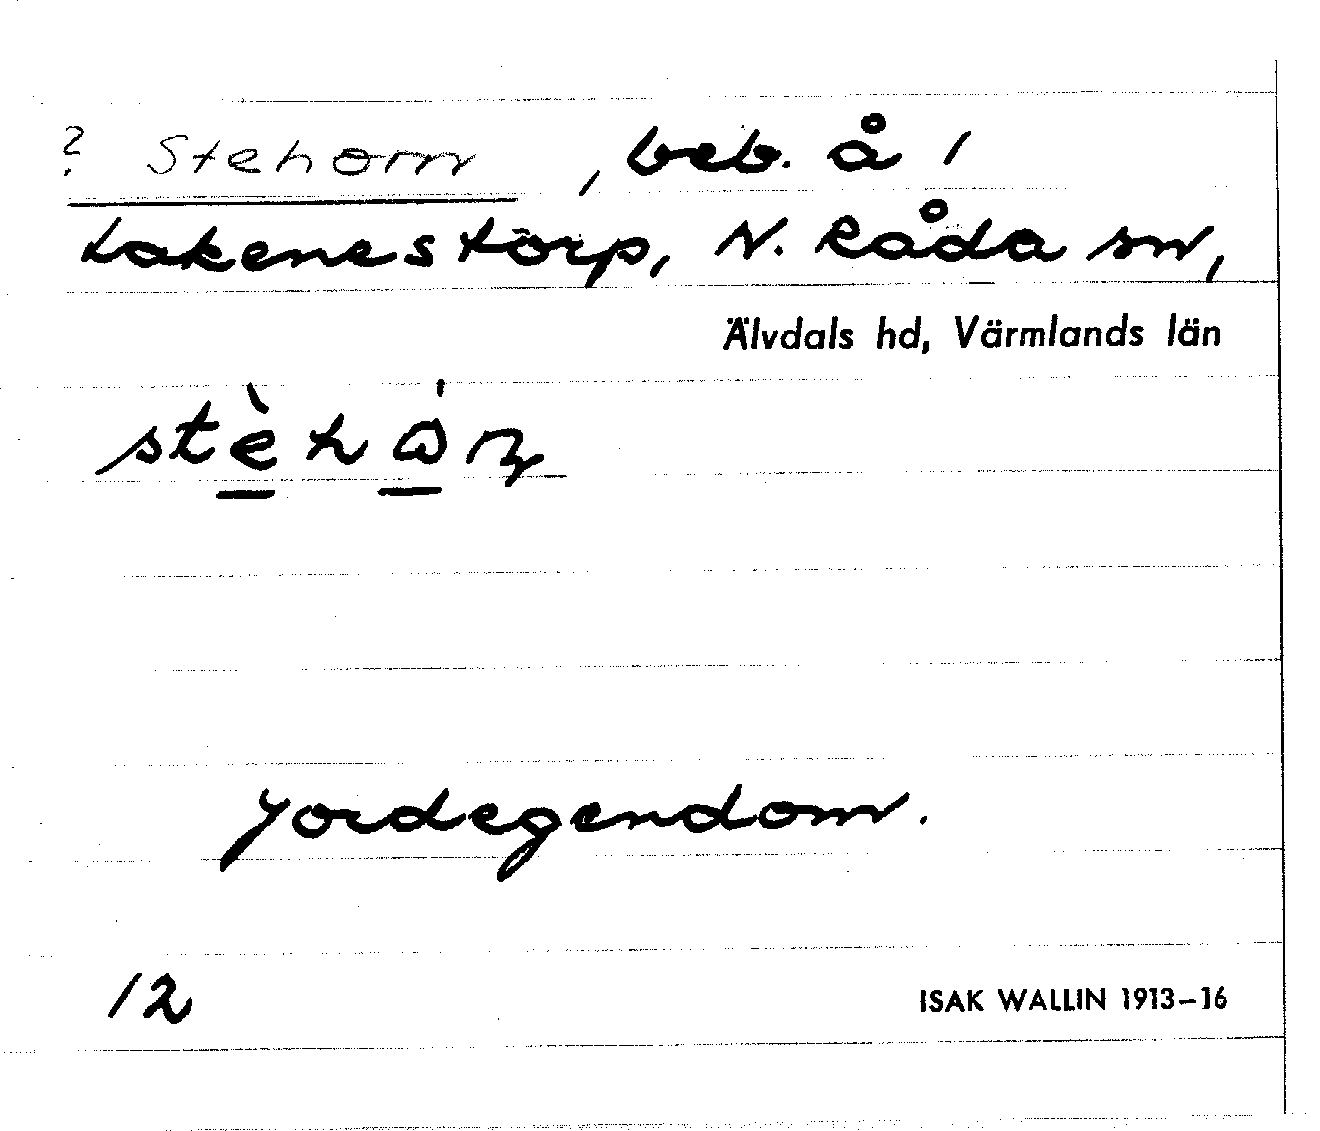 ? Stehorn, beb. å 1
Lakenestorp, N. Råda sn,
Älvdals hd, Värmlands län
Jordegendom.
12
ISAK WALLIN 1913–16